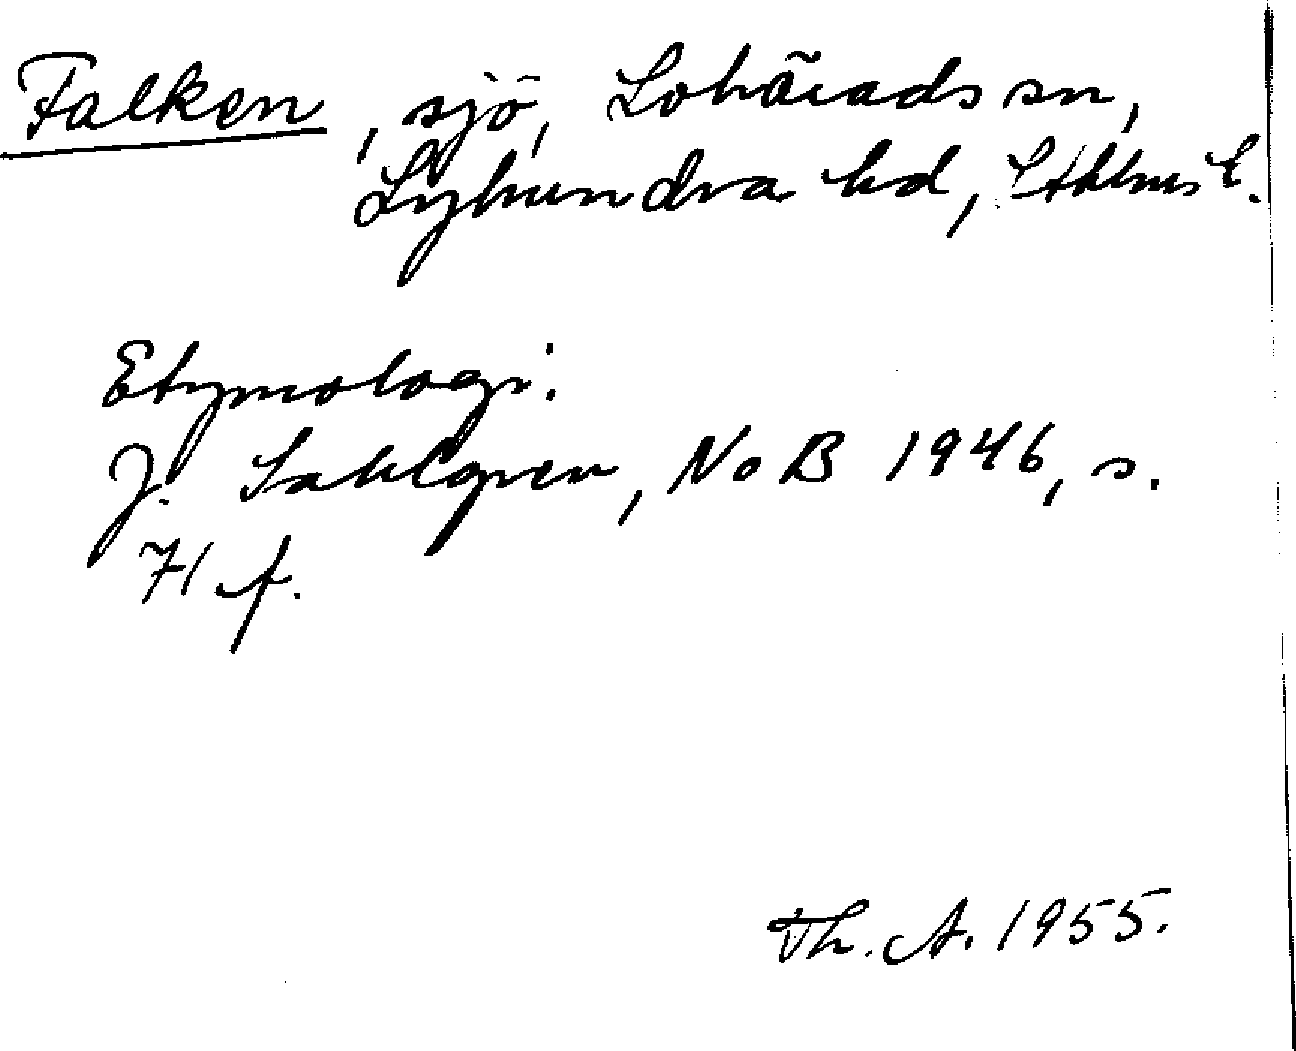 Falken, sjö, Lohärads sn,
Lyhundra hd, Sthlms l.
Etymologi:
J. Sahlgren, NoB 1946, s.
71 f.
Th. A. 1955.